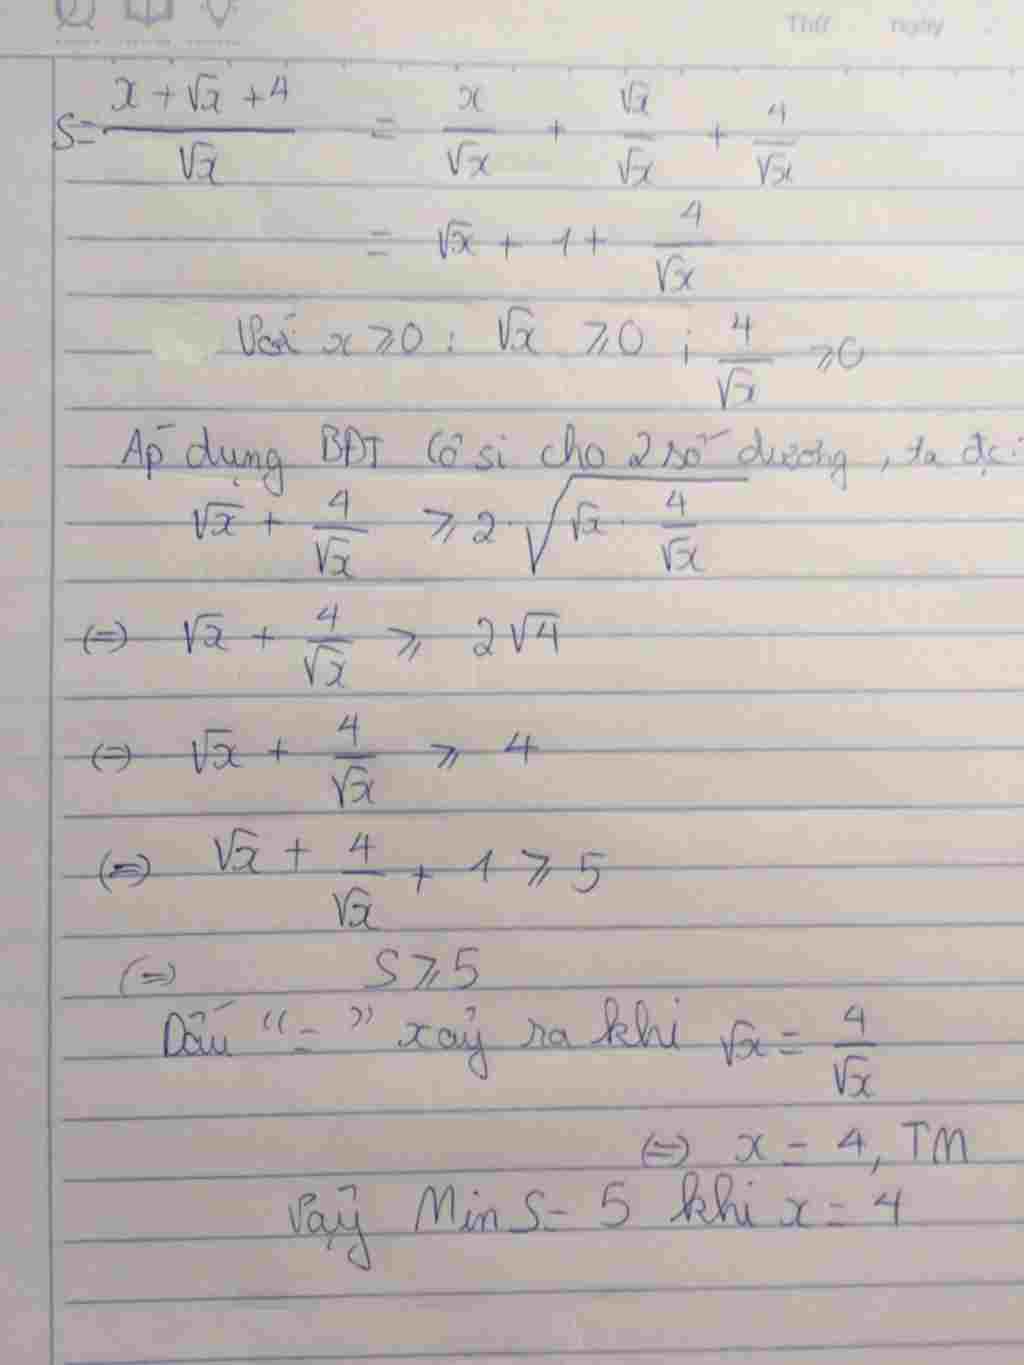 Thứ ngày
S = (x + √x + 4)/√x = x/√x + √x/√x + 4/√x
= √x + 1 + 4/√x
Với x ⩾ 0 : √x ⩾ 0 ; 4/√x ⩾ 0
Áp dụng BĐT Cô si cho 2 số dương, ta đc:
√x + 4/√x ⩾ 2·√(√x · 4/√x)
(=) √x + 4/√x ⩾ 2√4
(=) √x + 4/√x ⩾ 4
(=) √x + 4/√x + 1 ⩾ 5
(=) S ⩾ 5
Dấu "=" xảy ra khi √x = 4/√x
(=) x = 4, TM
Vậy Min S = 5 khi x = 4